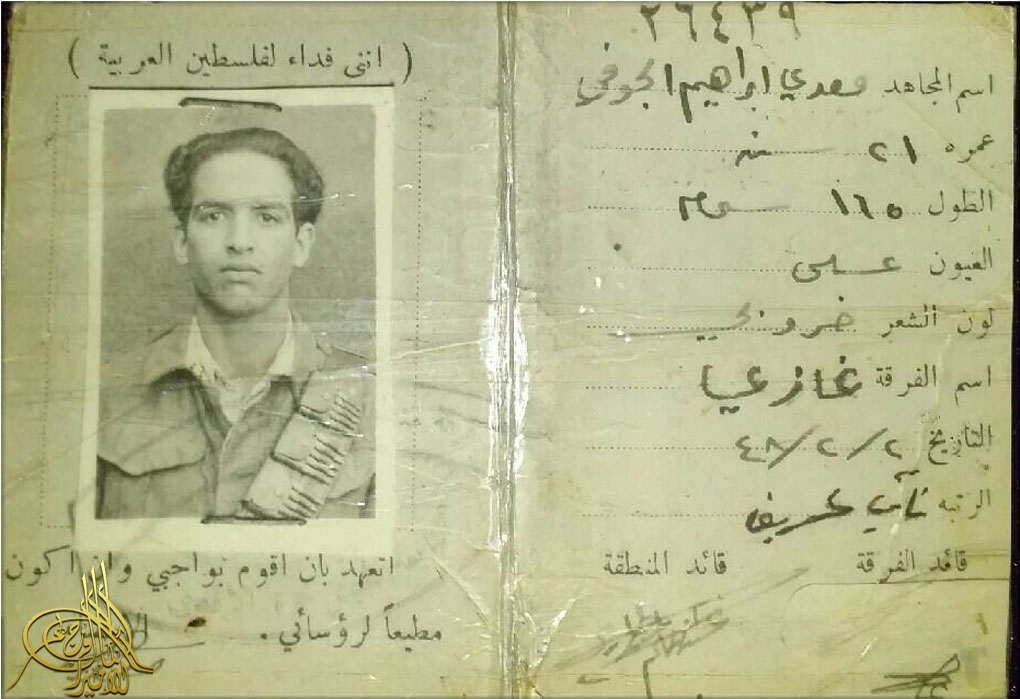 ٢٦٤٣٩
اسم المجاهد سعدي ابراهيم الجوفي
عمره ٢١ سنه
الطول ١٦٥ سم
العيون عسلي
لون الشعر خروبي
اسم الفرقة
التاريخ ٢/٢/٤٨
الرتبه نائب عريف
قائد الفرقة
قائد المنطقة
( انني فداء لفلسطين العربية )
اتعهد بان اقوم بواجبي وان اكون
مطيعاً لرؤسائي .